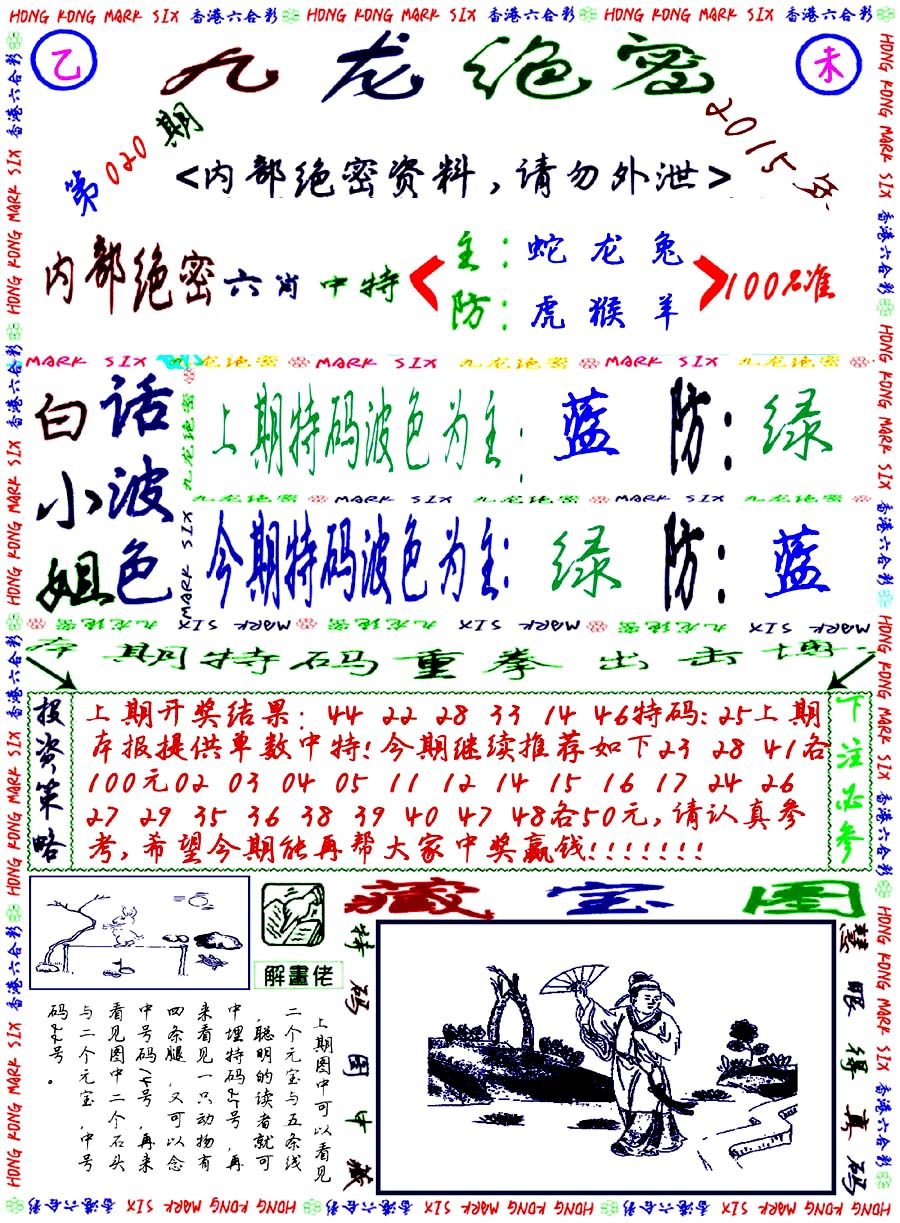 HONG KONG MARK SIX 香港六合彩 HONG KONG MARK SIX 香港六合彩 HONG KONG MARK SIX 香港六合彩
乙
九龙绝密
未
第020期
2015年
<内部绝密资料,请勿外泄>
内部绝密六肖中特
主:蛇龙兔
防:虎猴羊
100%准
MARK SIX 九龙绝密 MARK SIX 九龙绝密 MARK SIX 九龙绝密
白小姐
话波色
上期特码波色为主:蓝 防:绿
九龙绝密 MARK SIX 九龙绝密 MARK SIX 九龙绝密
今期特码波色为主:绿 防:蓝
MARK SIX 九龙绝密 MARK SIX 九龙绝密 MARK SIX 九龙绝密
本期特码重拳出击博
投资策略
上期开奖结果:44 22 28 33 14 46特码:25上期
本报提供单数中特!今期继续推荐如下23 28 41各
100元02 03 04 05 11 12 14 15 16 17 24 26
27 29 35 36 38 39 40 47 48各50元,请认真参
考,希望今期能再帮大家中奖赢钱!!!!!!!
下注必参
藏宝图
解畫佬
特码图中藏
慧眼得真码
上期图中可以看见
二个元宝与五条线
,聪明的读者就可
中埋特码25号,再
来看见一只动物有
四条腿,又可以念
中号码14号,再来
看见图中二个石头
与二个元宝,中号
码22号。
HONG KONG MARK SIX 香港六合彩 HONG KONG MARK SIX 香港六合彩 HONG KONG MARK SIX 香港六合彩